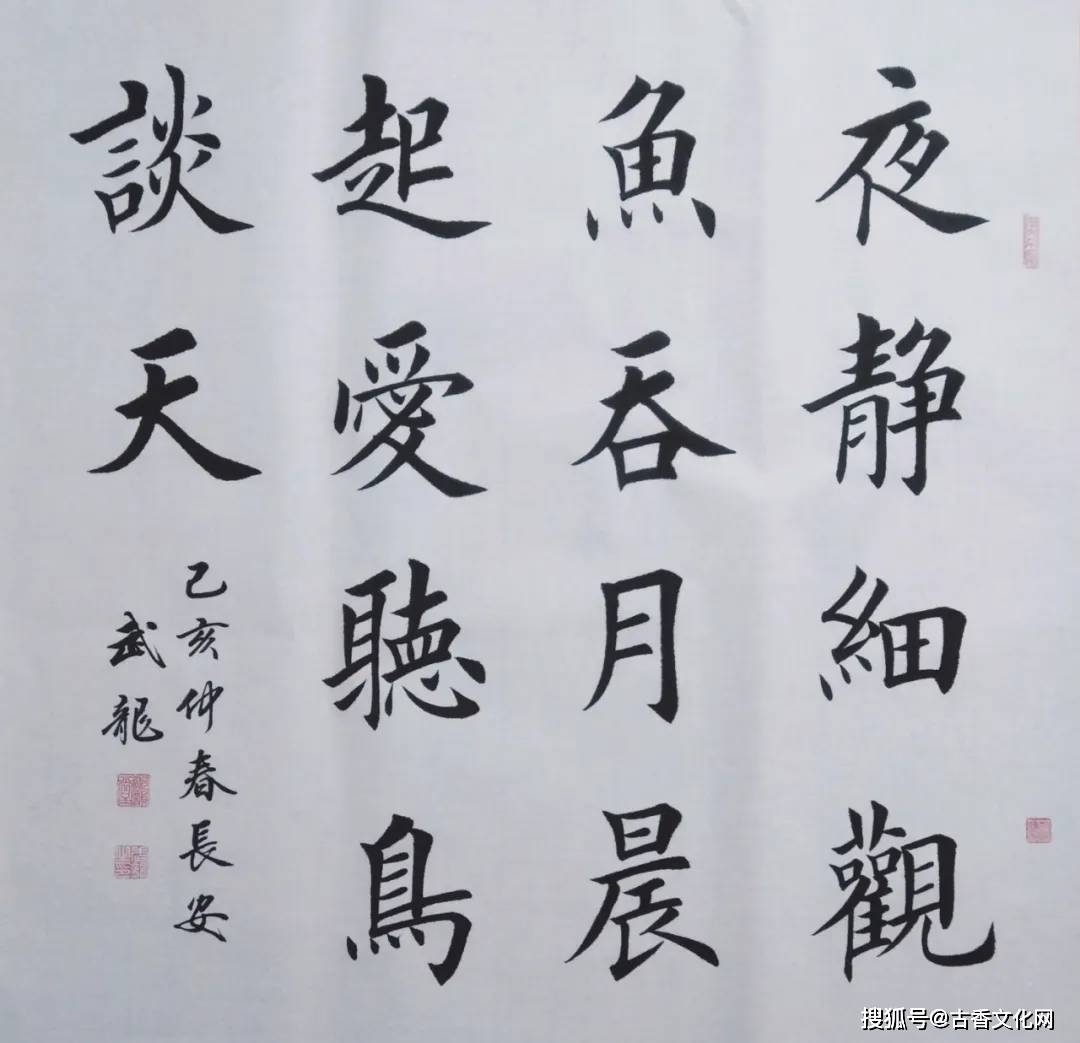 夜静細觀
魚吞月晨
起愛聽鳥
談天
己亥仲春長安
武龍
搜狐号@古香文化网